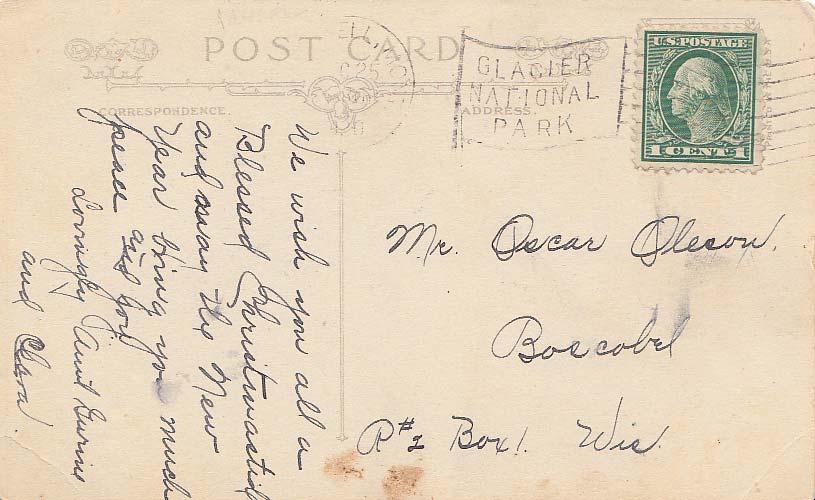 POST CARD
CORRESPONDENCE.
ADDRESS.
GLACIER
NATIONAL
PARK
U.S. POSTAGE
1 CENT 1
We wish you all a
Blessed Christmastide
and may the New
Year bring you much
peace and joy
Lovingly Aunt
and Clara.
Mr. Oscar Oleson.
Boscobel
R#2 Box 1. Wis.